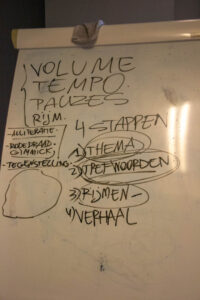 VOLUME
TEMPO
PAUZES
RIJM.
- ALLITERATIE
- RODE DRAAD
GIMMICK
- TEGENSTELLING
4 STAPPEN
1) THEMA
2) TREFWOORDEN
3) RIJMEN
4) VERHAAL